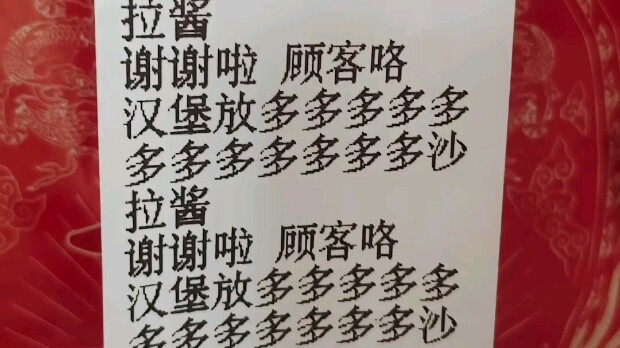 拉酱
谢谢啦 顾客咯
汉堡放多多多多多
多多多多多多多沙
拉酱
谢谢啦 顾客咯
汉堡放多多多多多
多多多多多多多沙